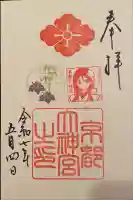 奉拝
京都
大神宮
之印
令和七年
五月四日